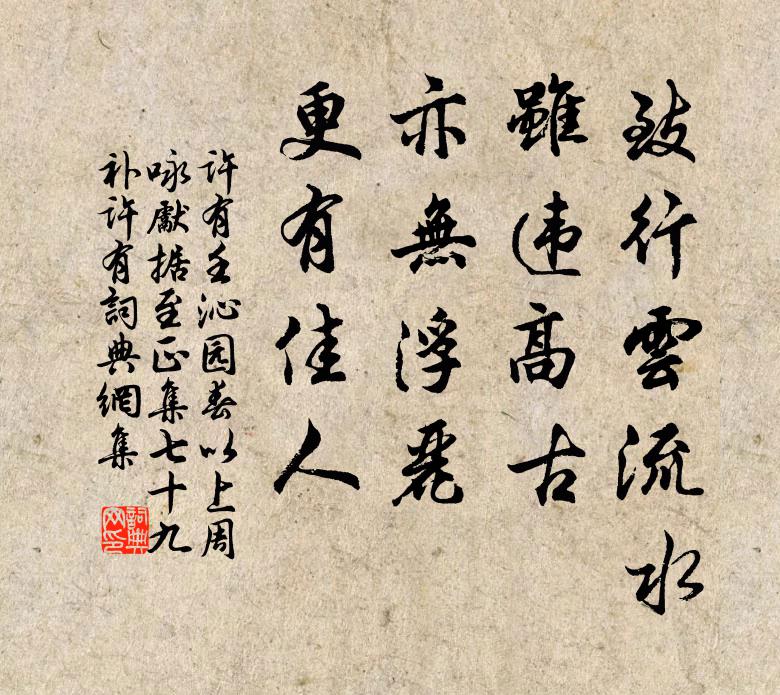 致行雲流水
雖违高古
亦無浮麗
更有佳人
許有壬沁园春以上周
咏獻据至正集七十九
补許有詞典網集
詞典
网印